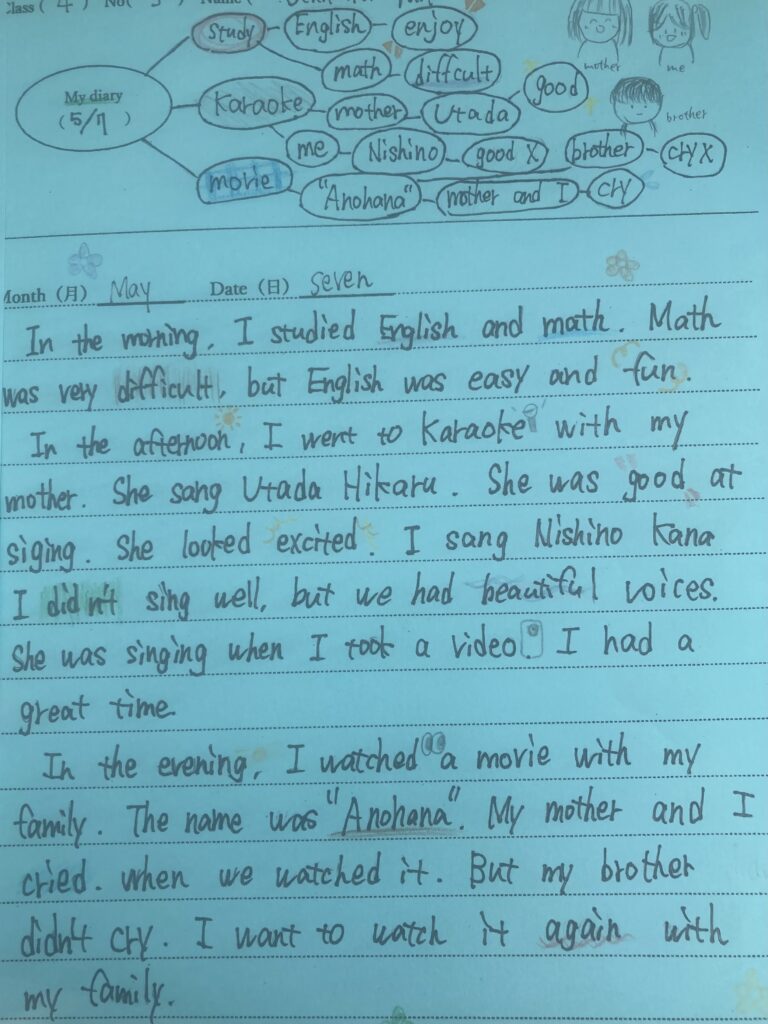 Class ( 4 ) No( 5 ) Name (
Study English enjoy
math diffcult
My diary
(5/7)
Karaoke mother Utada good
me Nishino good X brother cry X
movie "Anohana" mother and I cry
mother me
brother
Month (月) May Date (日) seven
In the morning, I studied English and math. Math
was very difficult, but English was easy and fun.
In the afternooh, I went to Karaoke with my
mother. She sang Utada Hikaru. She was good at
siging. She looked excited. I sang Nishino Kana
I didn't sing well, but we had beautiful voices.
She was singing when I took a video. I had a
great time.
In the evening, I watched a movie with my
family. The name was "Anohana". My mother and I
cried. when we watched it. But my brother
didn't cry. I want to watch it again with
my family.